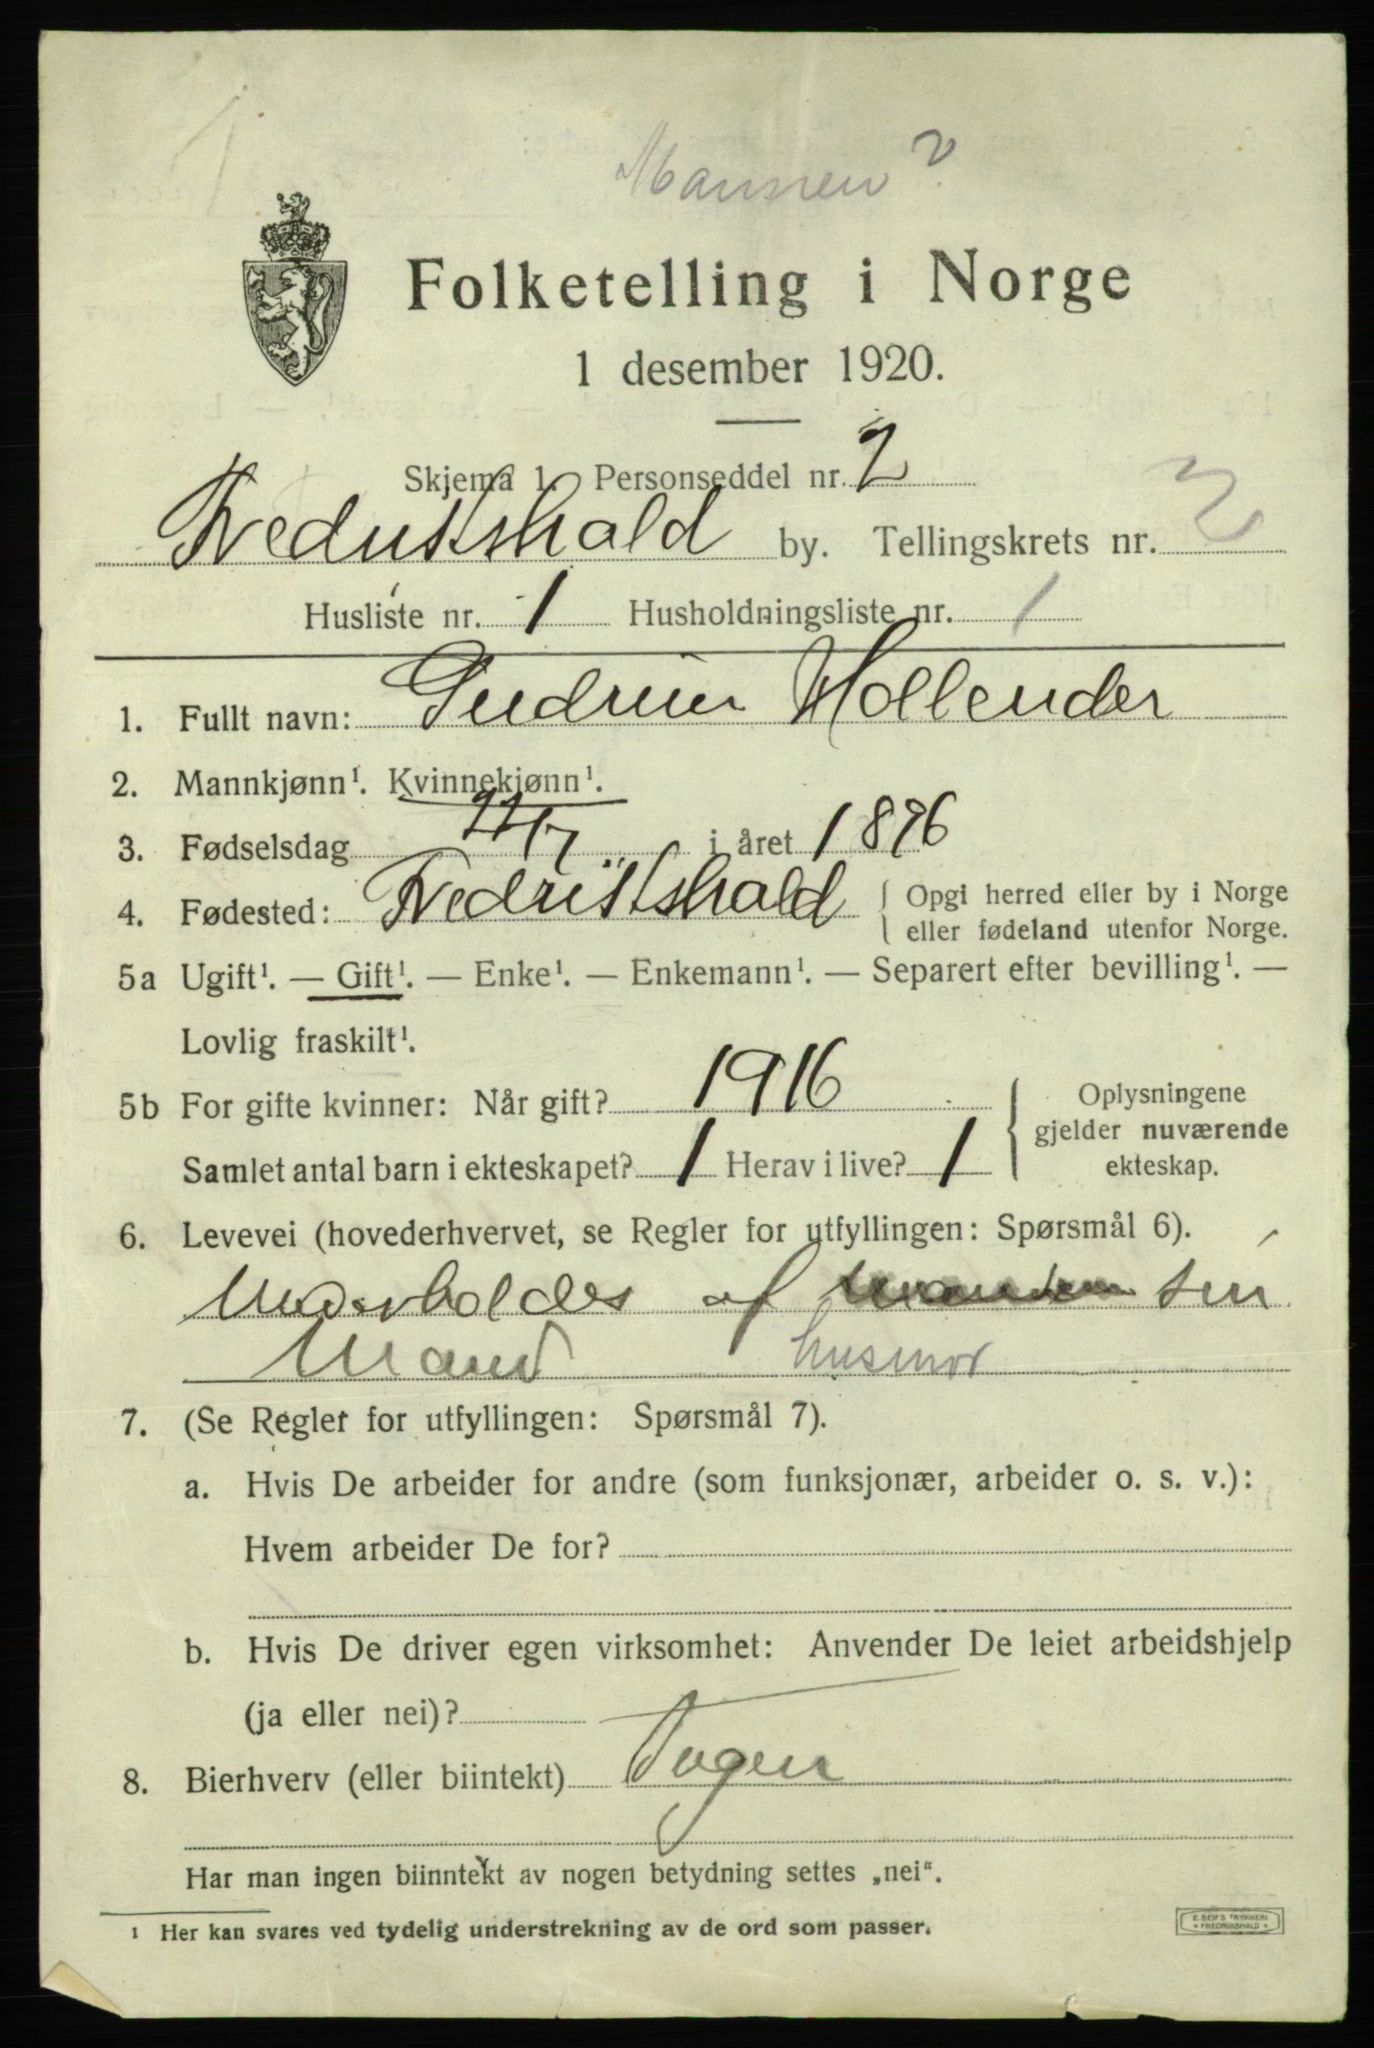 Mannen?
Folketelling i Norge
1 desember 1920.
Skjema 1. Personseddel nr. 2
Fredrikshald by. Tellingskrets nr. 3
Husliste nr. 1 Husholdningsliste nr. 1
1. Fullt navn: Gudrun Hollender
2. Mannkjønn¹. Kvinnekjønn¹.
3. Fødselsdag i året 1896
4. Fødested: Fredrikshald { Opgi herred eller by i Norge
eller fødeland utenfor Norge.
5a Ugift¹. — Gift¹. — Enke¹. — Enkemann¹. — Separert efter bevilling¹. —
Lovlig fraskilt¹.
5b For gifte kvinner: Når gift? 1916
Samlet antal barn i ekteskapet? 1 Herav i live? 1
Oplysningene
gjelder nuværende
ekteskap.
6. Levevei (hovederhvervet, se Regler for utfyllingen: Spørsmål 6).
Underholdes af sin
Mand husmor
7. (Se Regler for utfyllingen: Spørsmål 7).
a. Hvis De arbeider for andre (som funksjonær, arbeider o. s. v.):
Hvem arbeider De for?
b. Hvis De driver egen virksomhet: Anvender De leiet arbeidshjelp
(ja eller nei)?
8. Bierhverv (eller biintekt) Ingen
Har man ingen biinntekt av nogen betydning settes „nei“.
¹ Her kan svares ved tydelig understrekning av de ord som passer.
E. SEM'S TRYKKERI
FREDRIKSHALD